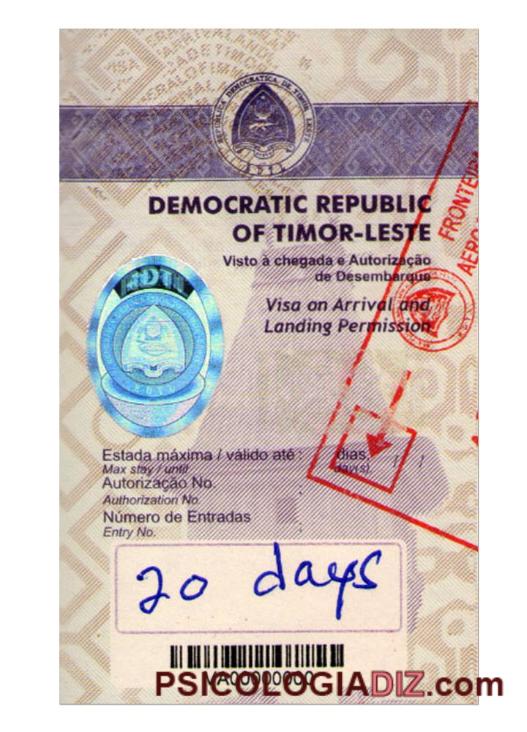 REPUBLICA DEMOCRATICA DE TIMOR LESTE
DEMOCRATIC REPUBLIC
OF TIMOR-LESTE
Visto à chegada e Autorização
de Desembarque
Visa on Arrival and
Landing Permission
FRONTEIRA
AERO
Estada máxima / válido até : dias, / /
Max stay / until day(s)
Autorização No. :
Authorization No
Número de Entradas :
Entry No.
20 days
VA00000000
PSICOLOGIADIZ.com